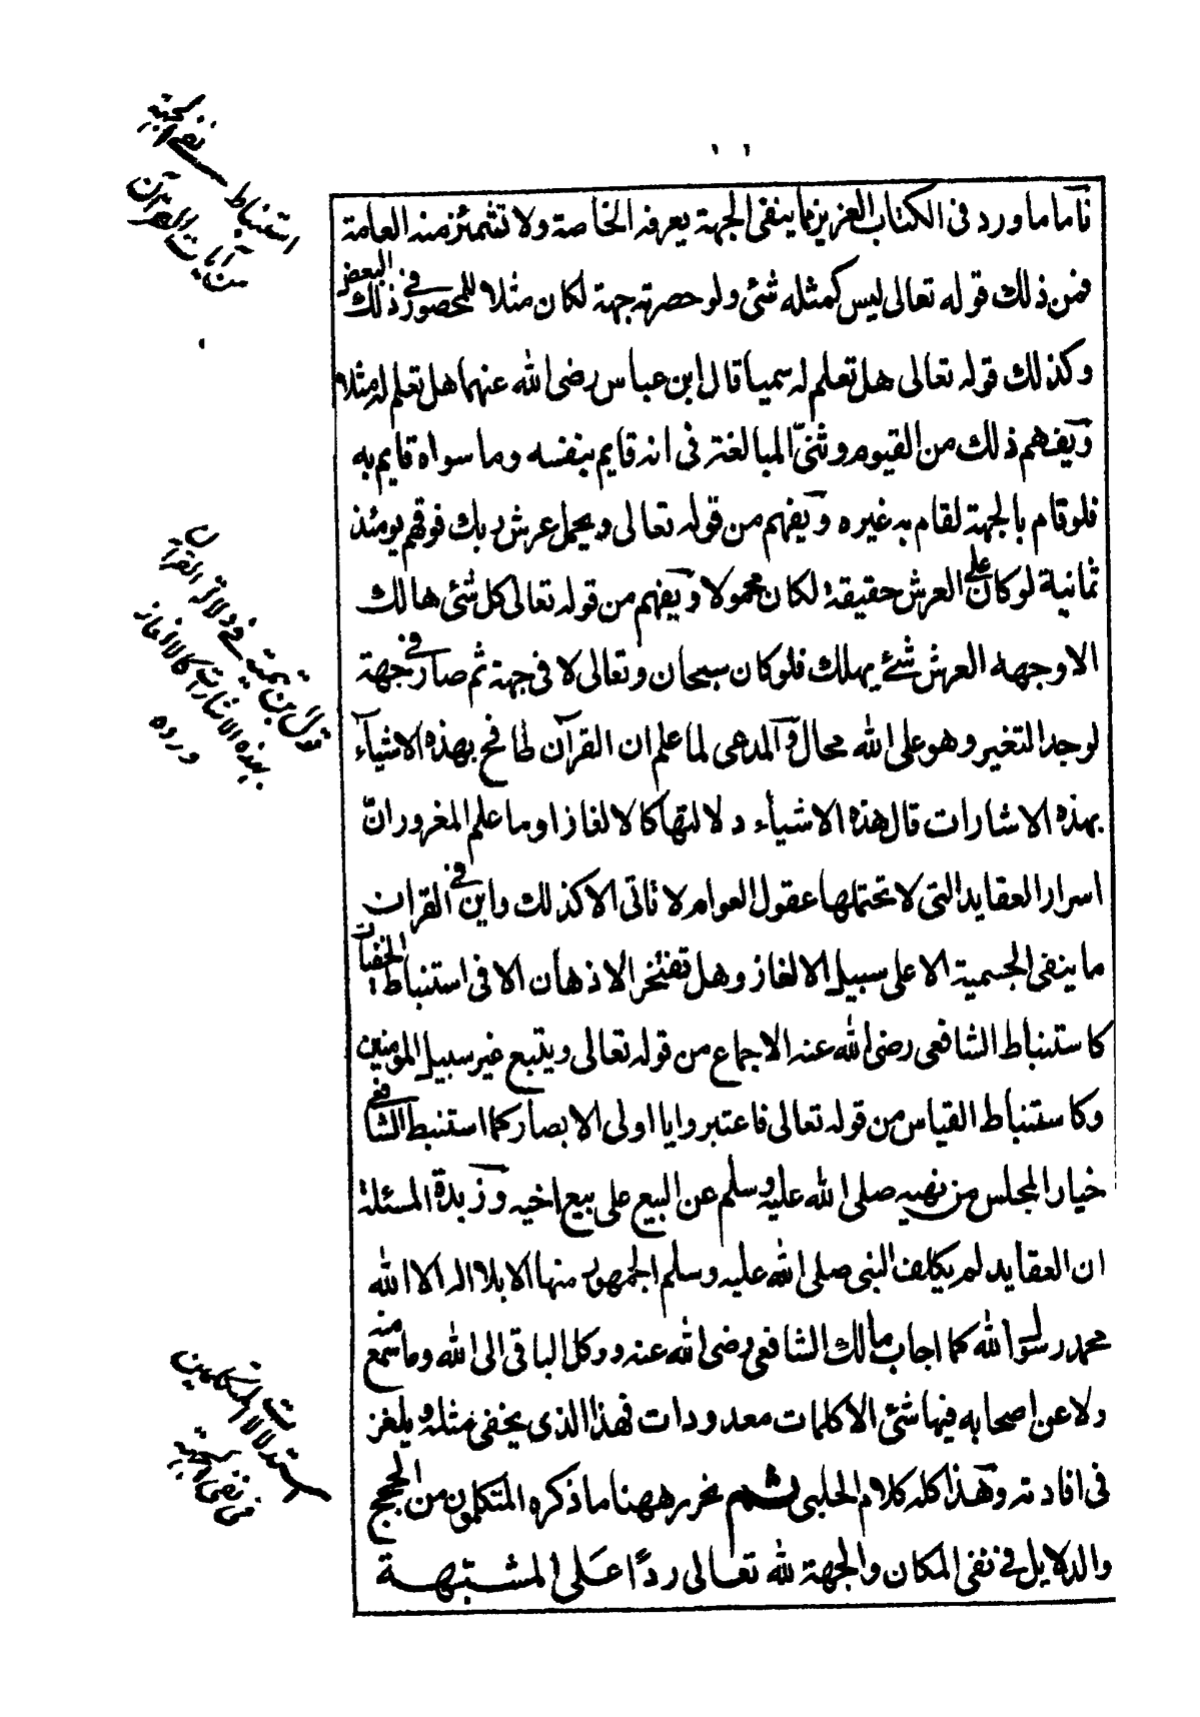 فآما ما ورد فى الكتاب العزيز مما ينفى الجهة يعرفه الخاصة ولا تشمئز منه العامة
فمن ذلك قوله تعالى ليس كمثله شئ ولو حصرته جهة لكان مثلا للمحصور فى ذلك البعض
وكذلك قوله تعالى هل تعلم له سميا قال ابن عباس رضى الله عنهما هل تعلم له مثلا
ويفهم ذلك من القيوم وثنىّ المبالغة فى انه قايم بنفسه وما سواه قايم به
فلو قام بالجهة لقام به غيره ويفهم من قوله تعالى ويحمل عرش ربك فوقهم يومئذ
ثمانية لو كان على العرش حقيقة لكان محمولا ويفهم من قوله تعالى كل شئ هالك
الا وجهه العرش شئ يهلك فلو كان سبحان وتعالى لا فى جهة ثم صار فى جهة
لوجد التغير وهو على الله محال والمدعى لما علم ان القرآن طافح بهذه الاشيآء
بهذه الاشارات قال هذه الاشيأء دلالتها كالالغاز اوما علم المغرور انّ
اسرار العقايد التى لا تحتملها عقول العوام لا تاتى الا كذلك واين فى القران
ما ينفى الجسمية الا على سبيل الالغاز وهل تفتخر الاذهان الا فى استنباط الخفيات
كاستنباط الشافعى رضى الله عنه الاجماع من قوله تعالى ويتبع غير سبيل المومنين
وكاستنباط القياس من قوله تعالى فاعتبروا يا اولى الابصار كما استنبط الشافعى
خيار المجلس من نهيه صلى الله عليه وسلم عن البيع على بيع اخيه وزبدة المسئلة
ان العقايد لم يكلف النبى صلى الله عليه وسلم الجمهور منها الا بلا اله الا الله
محمد رسول الله كما اجاب مالك الشافعى رضى الله عنه ووكل الباقى الى الله وما سمع منه
ولا عن اصحابه فيها شئ الا كلمات معدودات فهذا الذى يخفى مثله ويلغز
فى افادته وهذا كله كلام الحلبى ثم نحرر ههنا ما ذكره المتكلمون من الحجج
والدلايل فى نفى المكان والجهة لله تعالى ردًا على المشبهة
استنباط نفى الجهة
من آيات القرآن
قول ابن تيمية فى دلالة القران
بهذه الاشارات كالالغاز
ورده
استدلالات المتكلمين
فى نفى الجهة